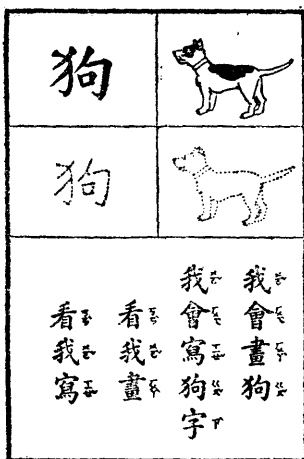 狗
狗
我會畫狗
我會寫狗字
看我畫
看我寫